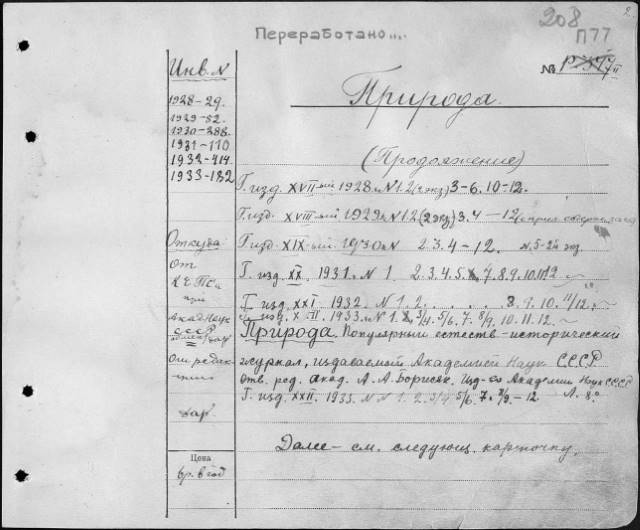 2
208
Переработано...
П77
№
Природа.
(Продолжение)
Инв. №
1928-29.
1929-52.
1930-288.
1931-110
1932-414.
1933-182
Г. изд. XVII-ый 1928. № 1.2 (2 экз) 3-6. 10-12.
Г. изд. XVIII-ый 1929. № 1.2 (2 экз) 3.4 — 12
Г. изд. XIX-ый. 1930. № 2. 3. 4 — 12.
Откуда:
От
Г. изд. XX. 1931. № 1. 2. 3. 4. 5. 7. 8. 9. 10. 11. 12.
Г. изд. XXI. 1932. № 1. 2. . . . . 8. 9. 10. 11/12.
1933. № 1. 2. 3/4. 5/6. 7. 8/9. 10. 11. 12.
Акад. Наук
СССР
Природа. Популярный естеств-исторический
От редак-
журнал, издаваемый Академией Наук СССР
отв. ред. акад. А. А. Борисяк. Изд-во Академии Наук СССР
Г. изд. XXII. 1933. №№ 1. 2. 3/4 5/6. 7. 8/9. — 12 Л. 8°
дар.
Далее — см. следующ. карточку.
Цена
вр. в год